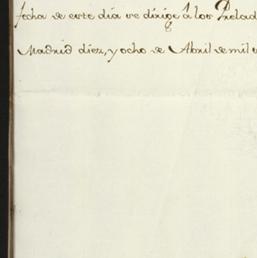 fecha de este dia se dirige á los Prelad
Madrid diez, y ocho de Abril de mil